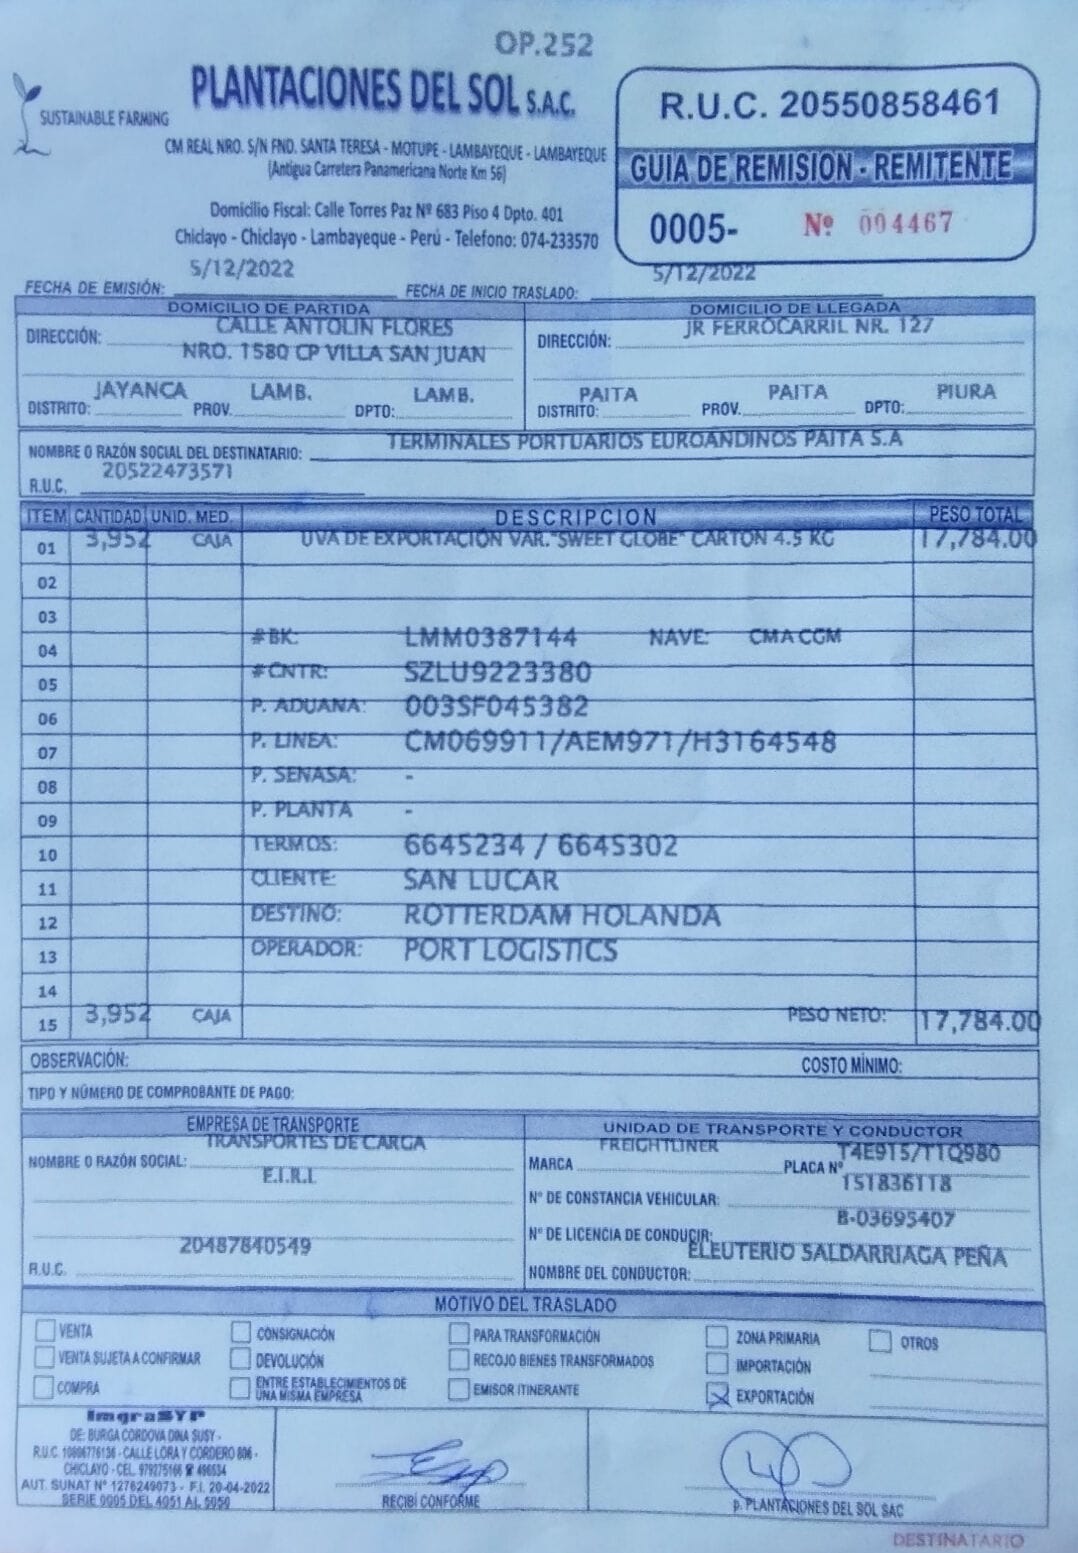 OP.252
PLANTACIONES DEL SOL S.A.C.
SUSTAINABLE FARMING
CM REAL NRO. S/N FND. SANTA TERESA - MOTUPE - LAMBAYEQUE - LAMBAYEQUE
(Antigua Carretera Panamericana Norte Km 56)
Domicilio Fiscal: Calle Torres Paz Nº 683 Piso 4 Dpto. 401
Chiclayo - Chiclayo - Lambayeque - Perú - Telefono: 074-233570
R.U.C. 20550858461
GUIA DE REMISION - REMITENTE
0005- Nº 004467
FECHA DE EMISIÓN: 5/12/2022 FECHA DE INICIO TRASLADO: 5/12/2022
DOMICILIO DE PARTIDA
DIRECCIÓN: CALLE ANTOLIN FLORES
NRO. 1580 CP VILLA SAN JUAN
DISTRITO: JAYANCA PROV. LAMB. DPTO: LAMB.
DOMICILIO DE LLEGADA
DIRECCIÓN: JR FERROCARRIL NR. 127
DISTRITO: PAITA PROV. PAITA DPTO: PIURA
NOMBRE O RAZÓN SOCIAL DEL DESTINATARIO: TERMINALES PORTUARIOS EUROANDINOS PAITA S.A
R.U.C. 20522473571
ITEM CANTIDAD UNID. MED. DESCRIPCION PESO TOTAL
01 3,952 CAJA UVA DE EXPORTACION VAR. "SWEET GLOBE" CARTON 4.5 KG 17,784.00
02
03
04 #BK: LMM0387144 NAVE: CMA CGM
05 #CNTR: SZLU9223380
06 P. ADUANA: 003SF045382
07 P. LINEA: CM069911/AEM971/H3164548
08 P. SENASA: -
09 P. PLANTA -
10 TERMOS: 6645234 / 6645302
11 CLIENTE: SAN LUCAR
12 DESTINO: ROTTERDAM HOLANDA
13 OPERADOR: PORT LOGISTICS
14
15 3,952 CAJA PESO NETO: 17,784.00
OBSERVACIÓN: COSTO MÍNIMO:
TIPO Y NÚMERO DE COMPROBANTE DE PAGO:
EMPRESA DE TRANSPORTE
NOMBRE O RAZÓN SOCIAL: TRANSPORTES DE CARGA
E.I.R.L
R.U.C. 20487840549
UNIDAD DE TRANSPORTE Y CONDUCTOR
MARCA FREIGHTLINER PLACA Nº T4E915/T1Q980
Nº DE CONSTANCIA VEHICULAR: 151836118
Nº DE LICENCIA DE CONDUCIR: B-03695407
NOMBRE DEL CONDUCTOR: ELEUTERIO SALDARRIAGA PEÑA
MOTIVO DEL TRASLADO
VENTA CONSIGNACIÓN PARA TRANSFORMACIÓN ZONA PRIMARIA OTROS
VENTA SUJETA A CONFIRMAR DEVOLUCIÓN RECOJO BIENES TRANSFORMADOS IMPORTACIÓN
COMPRA ENTRE ESTABLECIMIENTOS DE UNA MISMA EMPRESA EMISOR ITINERANTE EXPORTACIÓN
ImgraSYP
DE: BURGA CORDOVA DINA SUSY -
CALLE LORA Y CORDERO 806 -
CHICLAYO - CEL. 979275166
AUT. SUNAT Nº 1276249073 - F.I. 20-04-2022
SERIE 0005 DEL 4051 AL 5050
RECIBÍ CONFORME
p. PLANTACIONES DEL SOL SAC
DESTINATARIO